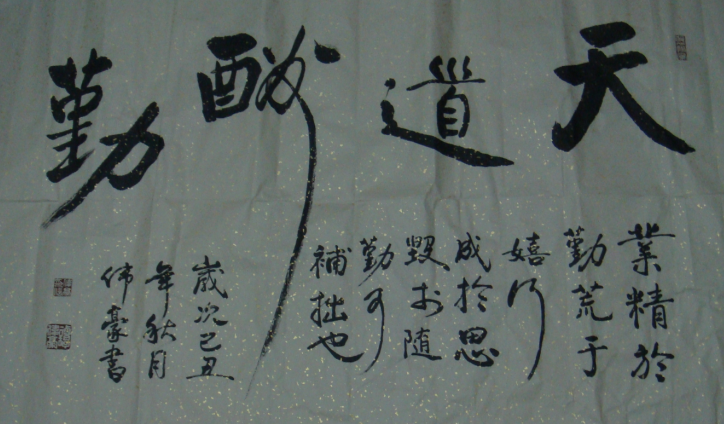 天道酬勤
業精於
勤荒于
嬉行
成於思
毀於随
勤可
補拙也
歲次己丑
年秋月
伟豪書